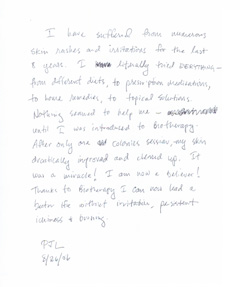 I have suffered from numerous
skin rashes and irritations for the last
8 years. I literally tried EVERYTHING –
from different diets, to prescription medications,
to home remedies, to topical solutions.
Nothing seemed to help me –
until I was introduced to Biotherapy.
After only one colonics session, my skin
drastically improved and cleared up. It
was a miracle! I am now a believer!
Thanks to Biotherapy I can now lead a
better life without irritation, persistent
itchiness & burning.
PJL
8/26/06